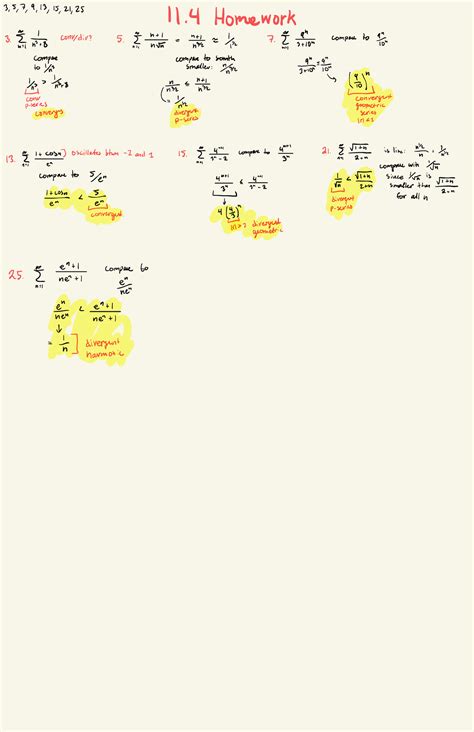 3, 5, 7, 9, 13, 15, 21, 25
11.4 Homework
3. ∞ Σ n=1 1/(n³+8) conv/div?
compare to 1/n³
1/n³ > 1/(n³+8)
conv p-series
converges
5. ∞ Σ n=1 (n+1)/(n√n) = (n+1)/n^(3/2) ≈ 1/n^(1/2)
compare to smaller: n/n^(3/2)
n/n^(3/2) ≤ (n+1)/n^(3/2)
= 1/n^(1/2)
divergent p-series
7. ∞ Σ n=1 9ⁿ/(3+10ⁿ) compare to 9ⁿ/10ⁿ
9ⁿ/(3+10ⁿ) < 9ⁿ/10ⁿ
(9/10)ⁿ
convergent geometric series
13. ∞ Σ n=1 (1+cosn)/eⁿ oscillates btwn -2 and 2
compare to 5/eⁿ
(1+cosn)/eⁿ < 5/eⁿ
convergent
15. ∞ Σ n=1 4ⁿ⁺¹/(3ⁿ-2) compare to 4ⁿ⁺¹/3ⁿ
4ⁿ⁺¹/3ⁿ ≤ 4ⁿ⁺¹/(3ⁿ-2)
4(4/3)ⁿ
divergent geometric
21. ∞ Σ n=1 √(1+n)/(2+n) is like:
compare with 1/√n
since 1/√n is smaller than √(1+n)/(2+n)
for all n
1/√n ≤ √(1+n)/(2+n)
divergent p-series
25. ∞ Σ n=1 (eⁿ+1)/(neⁿ+1) compare to eⁿ/neⁿ
eⁿ/neⁿ < (eⁿ+1)/(neⁿ+1)
= 1/n ] divergent harmonic